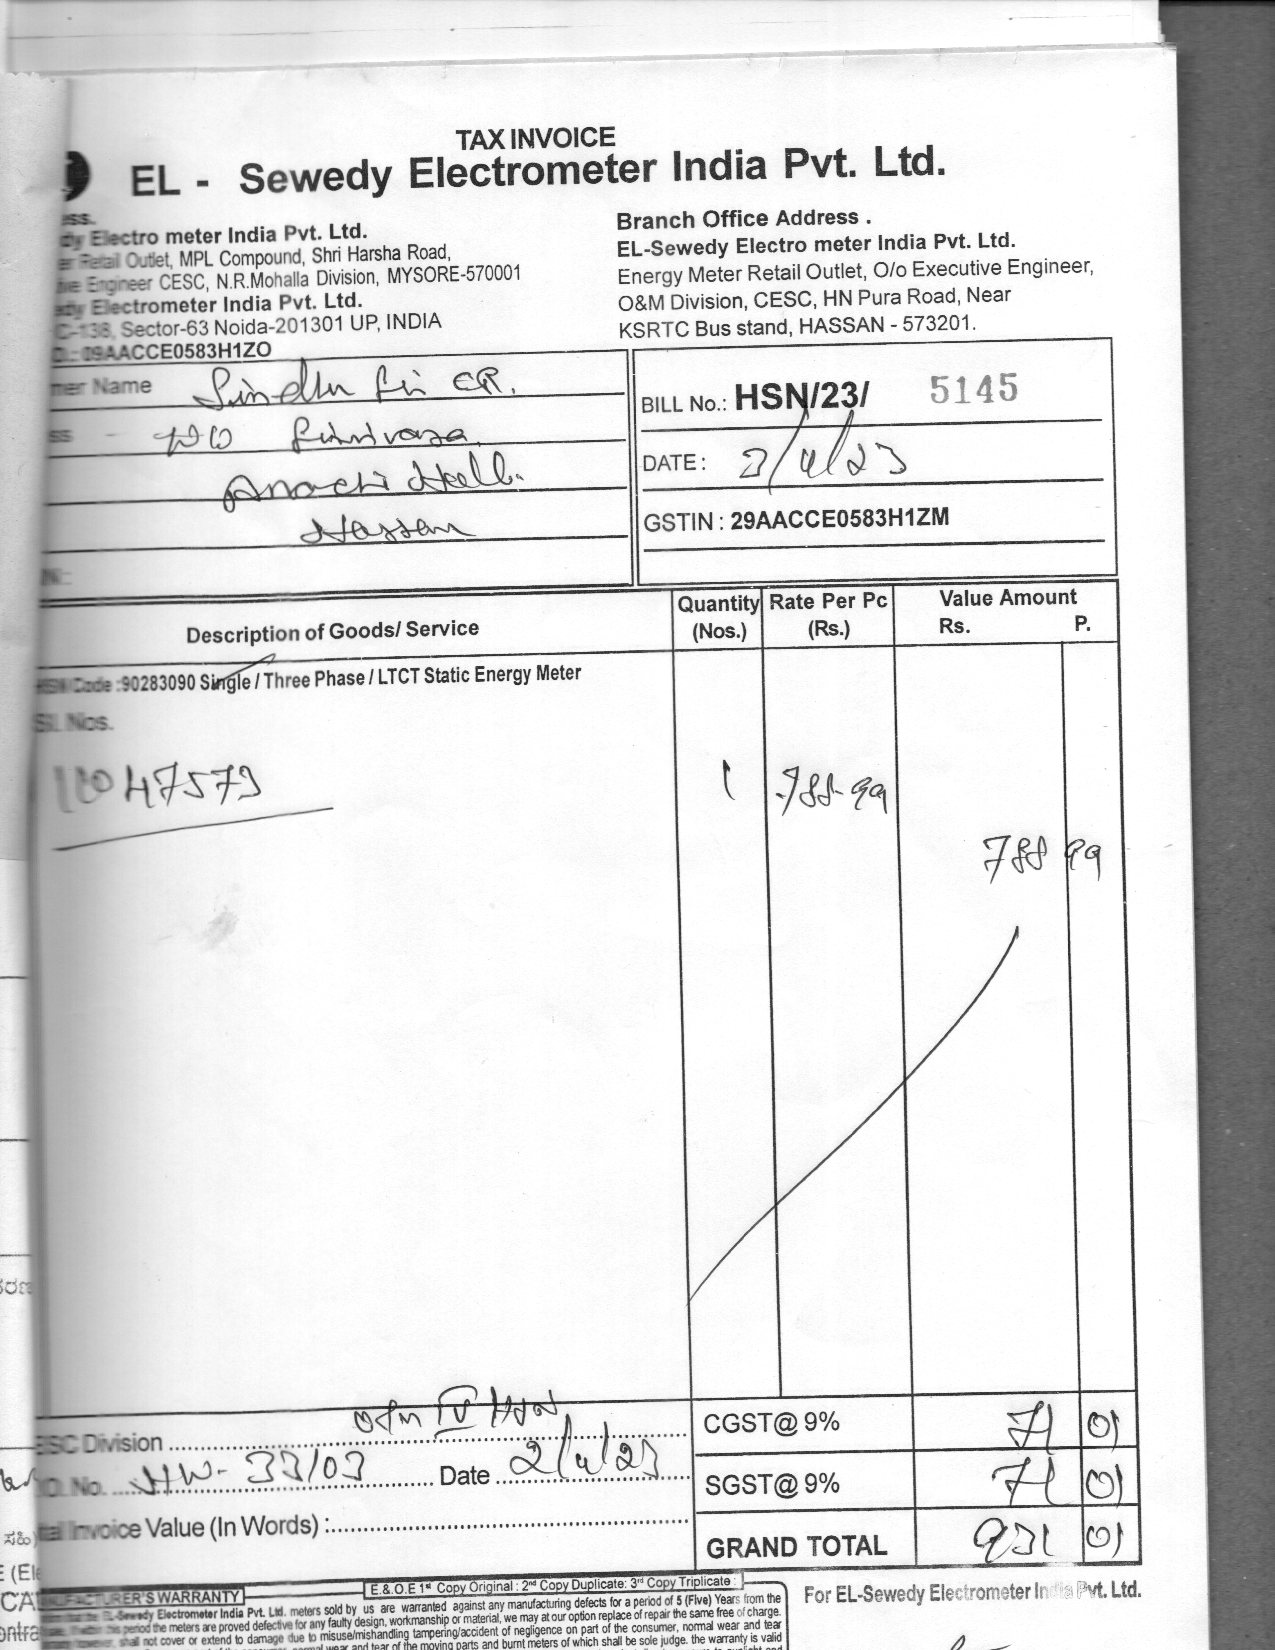 TAX INVOICE
EL - Sewedy Electrometer India Pvt. Ltd.
Electro meter India Pvt. Ltd.
Retail Outlet, MPL Compound, Shri Harsha Road,
Engineer CESC, N.R.Mohalla Division, MYSORE-570001
Electrometer India Pvt. Ltd.
C-138, Sector-63 Noida-201301 UP, INDIA
09AACCE0583H1ZO
Branch Office Address .
EL-Sewedy Electro meter India Pvt. Ltd.
Energy Meter Retail Outlet, O/o Executive Engineer,
O&M Division, CESC, HN Pura Road, Near
KSRTC Bus stand, HASSAN - 573201.
Name
Hassan
BILL No.: HSN/23/ 5145
DATE : 2/4/23
GSTIN : 29AACCE0583H1ZM
Description of Goods/ Service Quantity (Nos.) Rate Per Pc (Rs.) Value Amount Rs. P.
HSN Code :90283090 Single / Three Phase / LTCT Static Energy Meter
Sl. Nos.
47573 1 788-99
788 99
Division
No. HW- 33/03 Date 2/4/23
Invoice Value (In Words) :
CGST@ 9% 71 01
SGST@ 9% 71 01
GRAND TOTAL 931 01
MANUFACTURER'S WARRANTY
E.& O.E 1st Copy Original : 2nd Copy Duplicate: 3rd Copy Triplicate :
Sewedy Electrometer India Pvt. Ltd. meters sold by us are warranted against any manufacturing defects for a period of 5 (Five) Years from the
period the meters are proved defective for any faulty design, workmanship or material, we may at our option replace of repair the same free of charge.
shall not cover or extend to damage due to misuse/mishandling tampering/accident of negligence on part of the consumer, normal wear and tear
wear and tear of the moving parts and burnt meters of which shall be sole judge. the warranty is valid
For EL-Sewedy Electrometer India Pvt. Ltd.